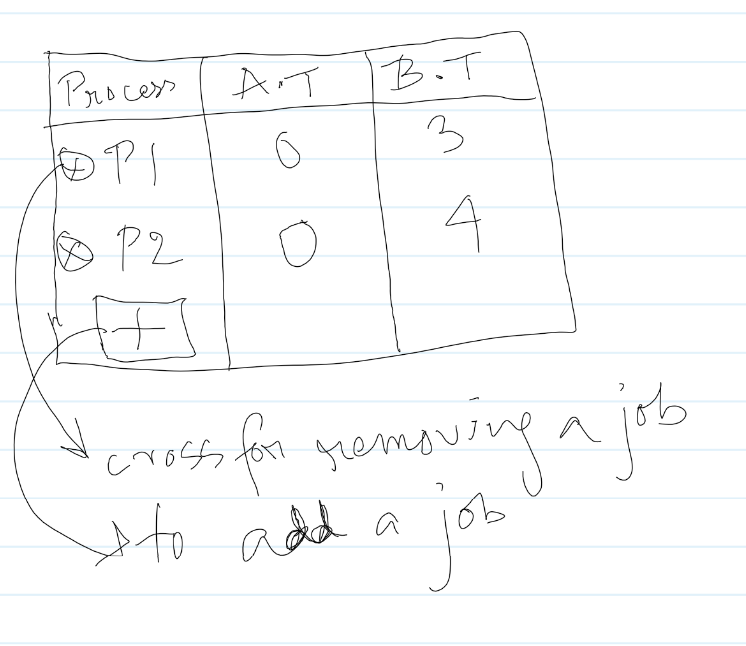 Process A.T B.T
⊗ P1 0 3
⊗ P2 0 4
+
cross for removing a job
to add a job